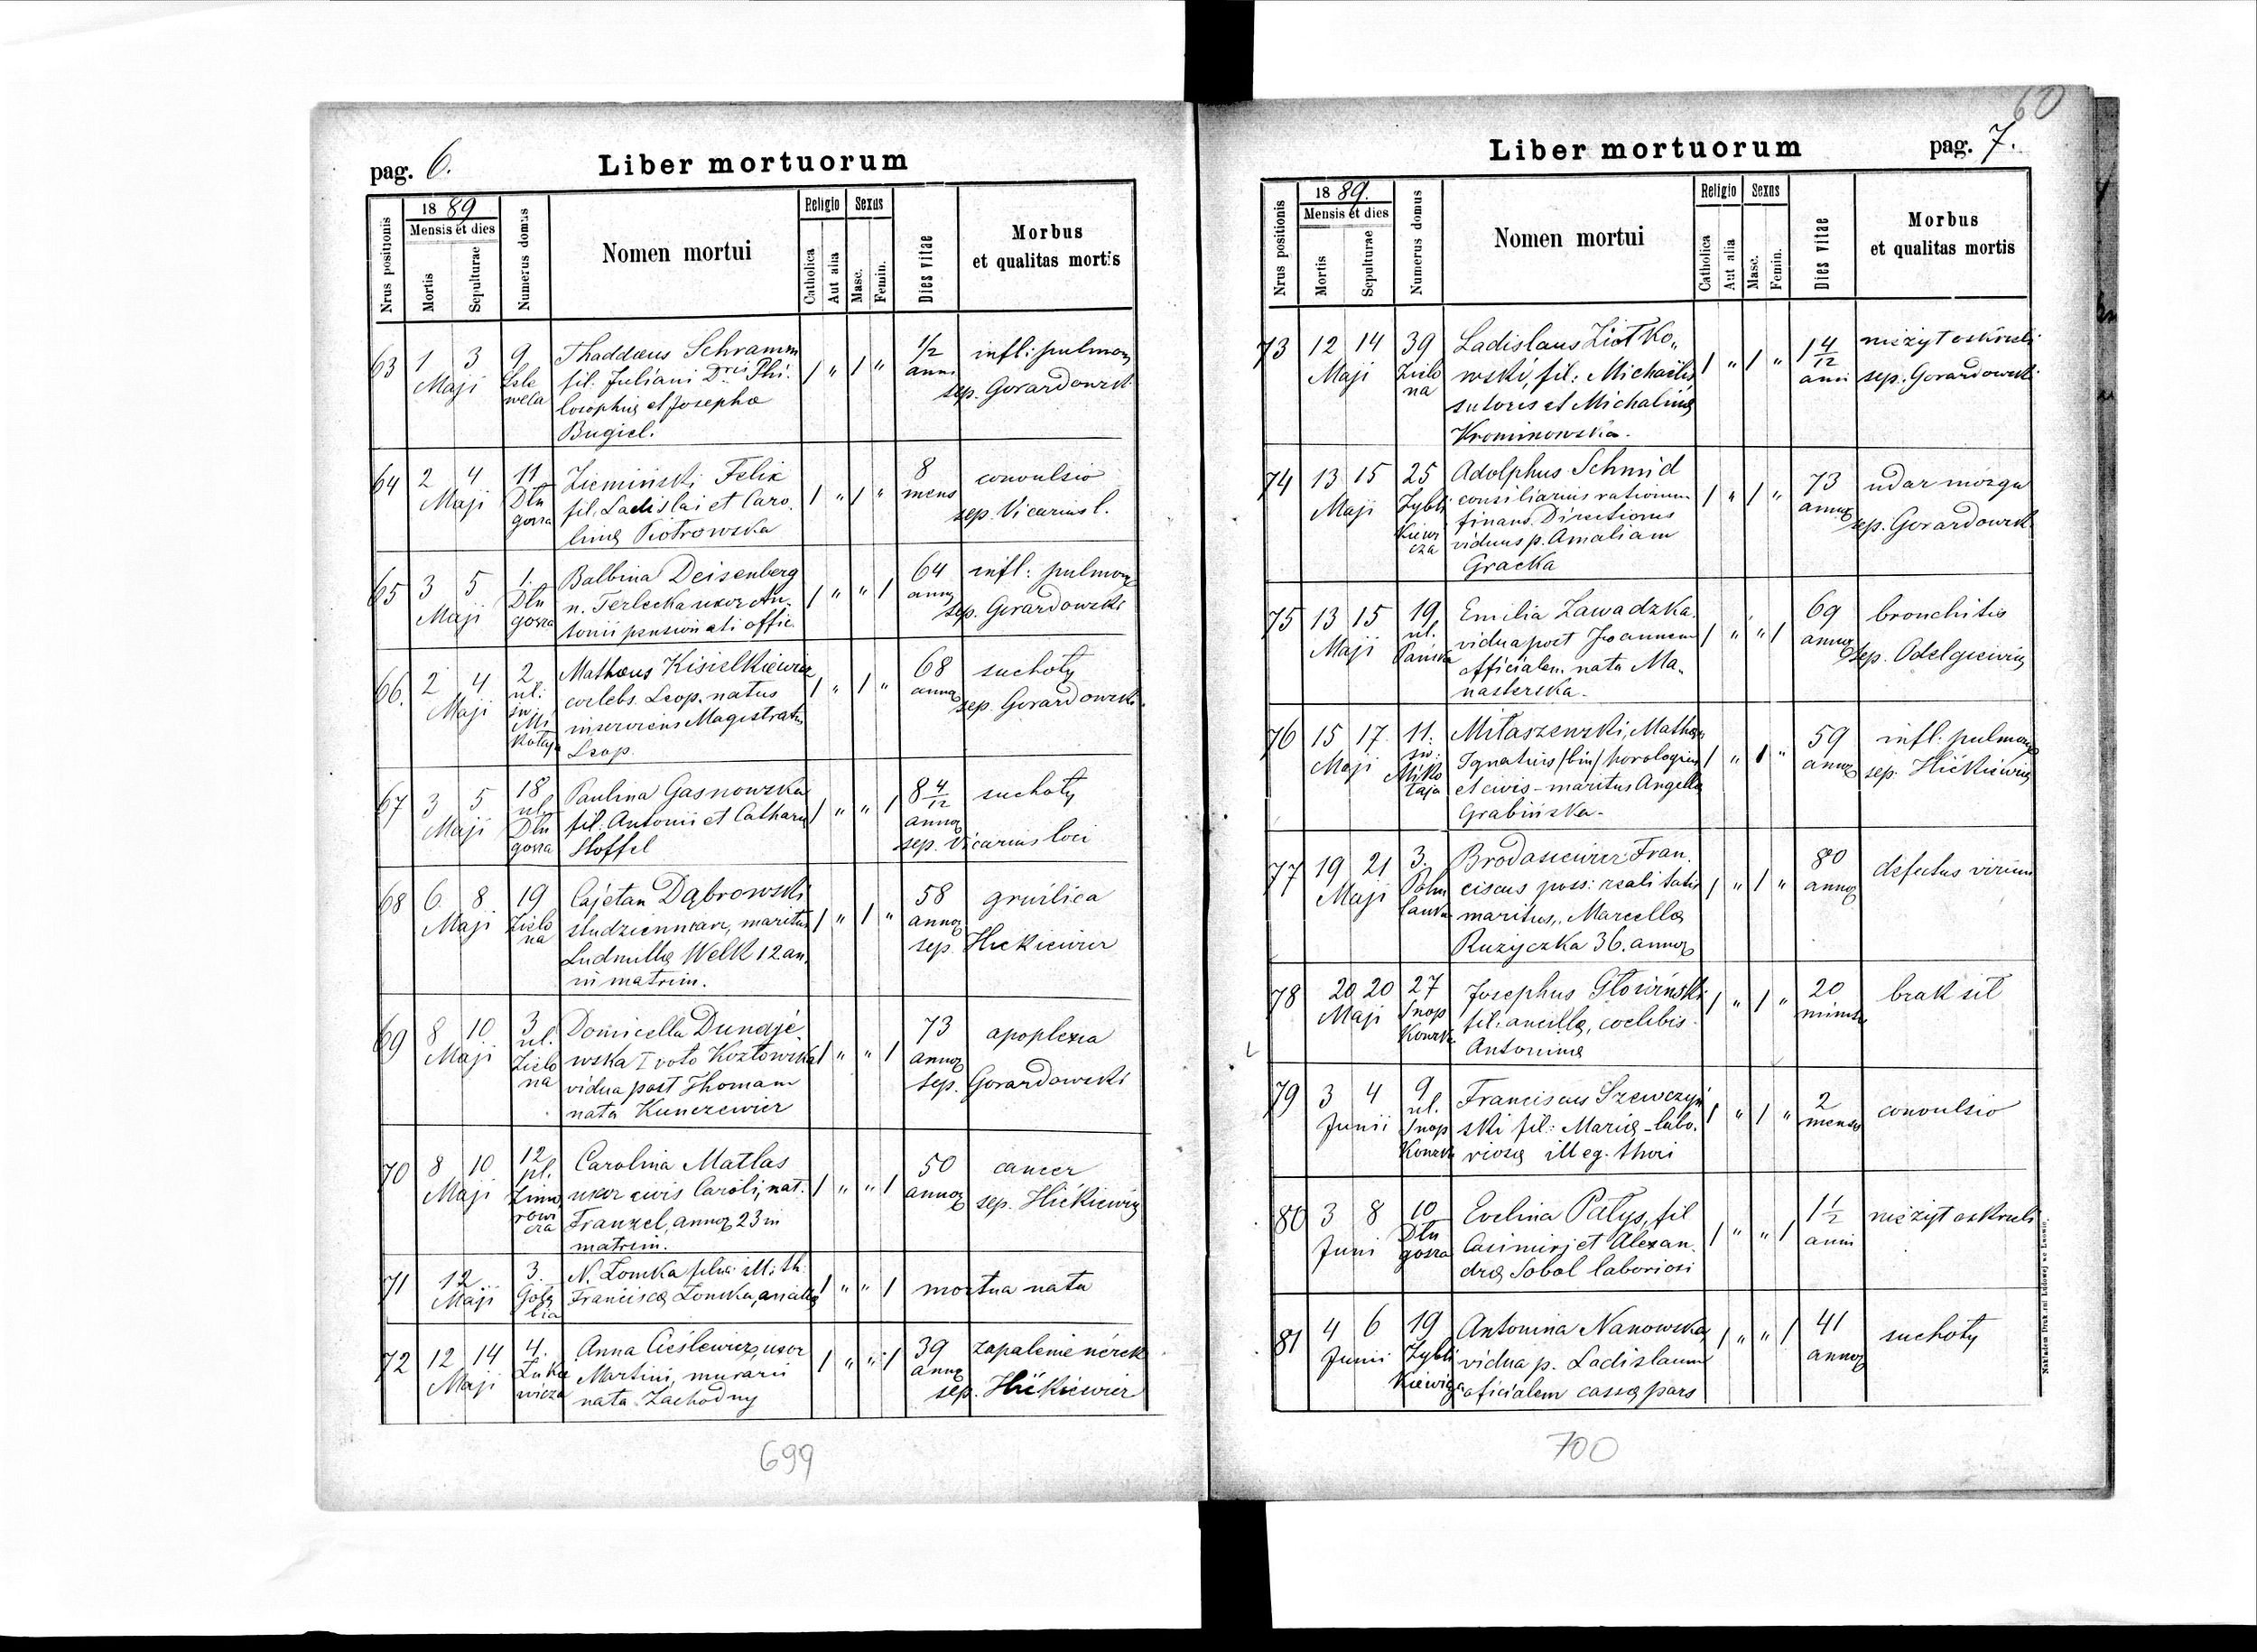 pag. 6.
Liber mortuorum
Nrus positionis
1889
Mensis et dies
Mortis
Sepulturae
Numerus domus
Nomen mortui
Religio
Catholica
Aut alia
Sexus
Masc.
Femin.
Dies vitae
Morbus
et qualitas mortis
63 1 3 Maji 9 Lelewela
Thaddæus Schramm
fil. Juliani Dris Phi.
losophię et Josepha
Bugiel.
/ " / " 1/2 anni
infl: pulmon
sep. Gorardowski
64 2 4 Maji 11 Długosza
Ziemiński Felix
fil. Ladislai et Caro.
linę Piotrowska
/ " / " 8 mens
convulsio
sep. Vicarius l.
65 3 5 Maji 1. Długosza
Balbina Deisenberg
n. Terlecka uxor An.
tonii pensionati offic
/ " " / 64 anno
infl: pulmon
sep. Gorardowski
66. 2 4 Maji 2 ul. św. Mikołaja
Mathæus Kisielkiewicz
coelebs Leop. natus
inserviens Magistratus
Leop.
/ " / " 68 anno
suchoty
sep. Gorardowski
67 3 5 Maji 18 ul. Długosza
Paulina Gasnowska
fil. Antonii et Cathari
Hoffel
/ " " / 8 4/12 anno
suchoty
sep. Vicarius loci
68 6 8 Maji 19 Zielona
Cajetan Dąbrowski
studzienniarz, maritus
Ludmillę Welk 12 an.
in matrim.
/ " / " 58 anno
gruźlica
sep. Hickiewicz
69 8 10 Maji 3 ul. Zielona
Domicella Dunaje.
wska I voto Kozłowska
vidua post Thomam
nata Kunczewicz
/ " " / 73 anno
apoplexia
sep. Gorardowski
70 8 10 Maji 12 pl. Zimorowicza
Carolina Matlas
uxor civis Caroli, nat.
Franzel, anno 23 in
matrim.
/ " " / 50 anno
cancer
sep. Hickiewicz
71 12 Maji 3. Gołębia
N. Łomka filia ill. th.
Franciscę Łomka, ancillę
/ " " / mortua nata
72 12 14 Maji 4. Łukasiewicza
Anna Cieślewicz, uxor
Martini, murarii
nata Zachodny
/ " " / 39 anno
zapalenie nerek
sep. Hickiewicz
699
60
Liber mortuorum
pag. 7.
Nrus positionis
1889.
Mensis et dies
Mortis
Sepulturae
Numerus domus
Nomen mortui
Religio
Catholica
Aut alia
Sexus
Masc.
Femin.
Dies vitae
Morbus
et qualitas mortis
73 12 14 Maji 39 Zielona
Ladislaus Ziotko„
wski, fil: Michaelis
sutoris et Michalinę
Krominowska.
/ " / " 1 4/12 anni
nieżyt oskrzeli
sep. Gorardowski
74 13 15 Maji 25 Zyblikiewicza
Adolphus Schmid
consiliarius rationum
finans. Directionis
viduus p. Amaliam
Gracka
/ " / " 73 anno
udar mózgu
sep. Gorardowski
75 13 15 Maji 19 ul. Pańska
Emilia Zawadzka
vidua post Joannem
officialem. nata Ma.
nasterska.
/ " " / 69 anno
bronchitis
sep. Odelgiewicz
76 15 17 Maji 11. św. Mikołaja
Miłaszewski, Mathæus
Ignatius /bin/ horologius
et civis - maritus Angella
Grabińska.
/ " / " 59 anno
infl: pulmon
sep. Hickiewicz
77 19 21 Maji 3.
Brodasiewicz Fran.
ciscus poss: realitatis
maritus, Marcellę
Ruzyczka 36. anno
/ " / " 80 anno
defectus virium
78 20 20 Maji 27 Snopkowska
Josephus Głowiński
fil. ancillę, coelibis
Antoninę
/ " / " 20 minut
brak sił
79 3 4 Junii 9 ul. Snopkowska
Franciscus Szewczyń
ski fil: Marię - labo.
riosę illeg. thori
/ " / " 2 mens
convulsio
80 3 8 Juni 10 Długosza
Evelina Patys, fil
Casimiri et Alexan.
drę Sobol laboriosi
/ " " / 1 1/2 anni
nieżyt oskrzeli
81 4 6 Junii 19 Zyblikiewicza
Antonina Nanowska
vidua p. Ladislaum
oficialem cassę pars
/ " " / 41 anno
suchoty
Nakładem Drukarni Ludowej we Lwowie
700